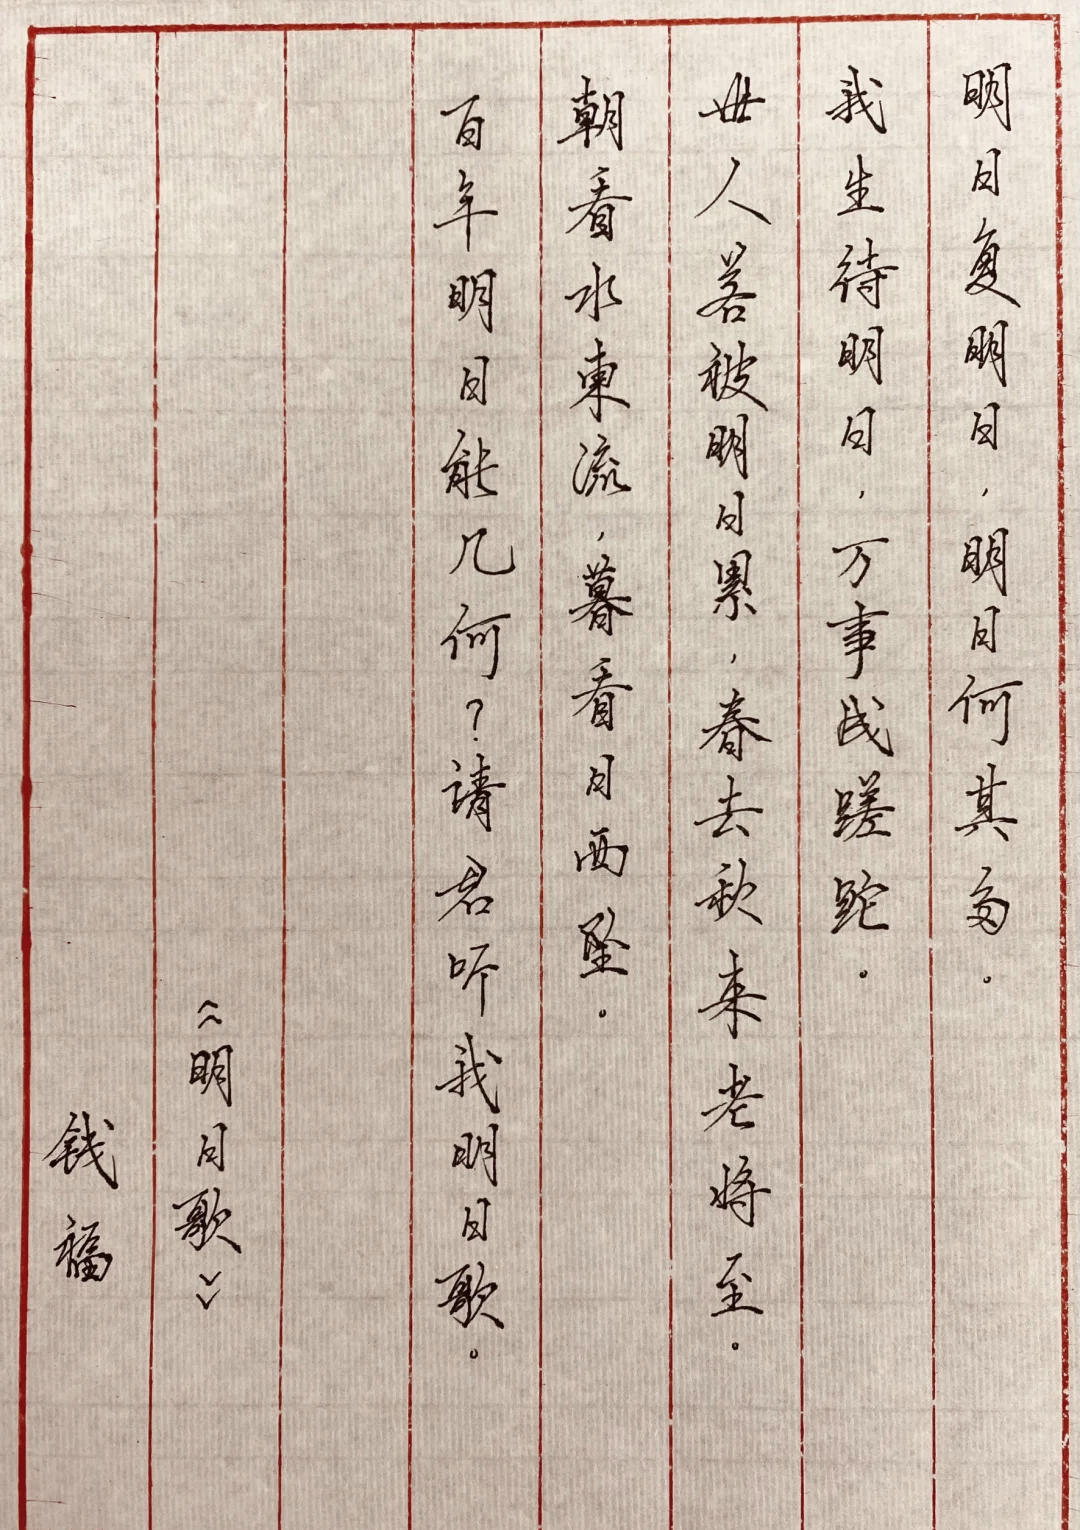 明日复明日，明日何其多。
我生待明日，万事成蹉跎。
世人若被明日累，春去秋来老将至。
朝看水東流，暮看日西坠。
百年明日能几何？请君听我明日歌。
《明日歌》
钱福